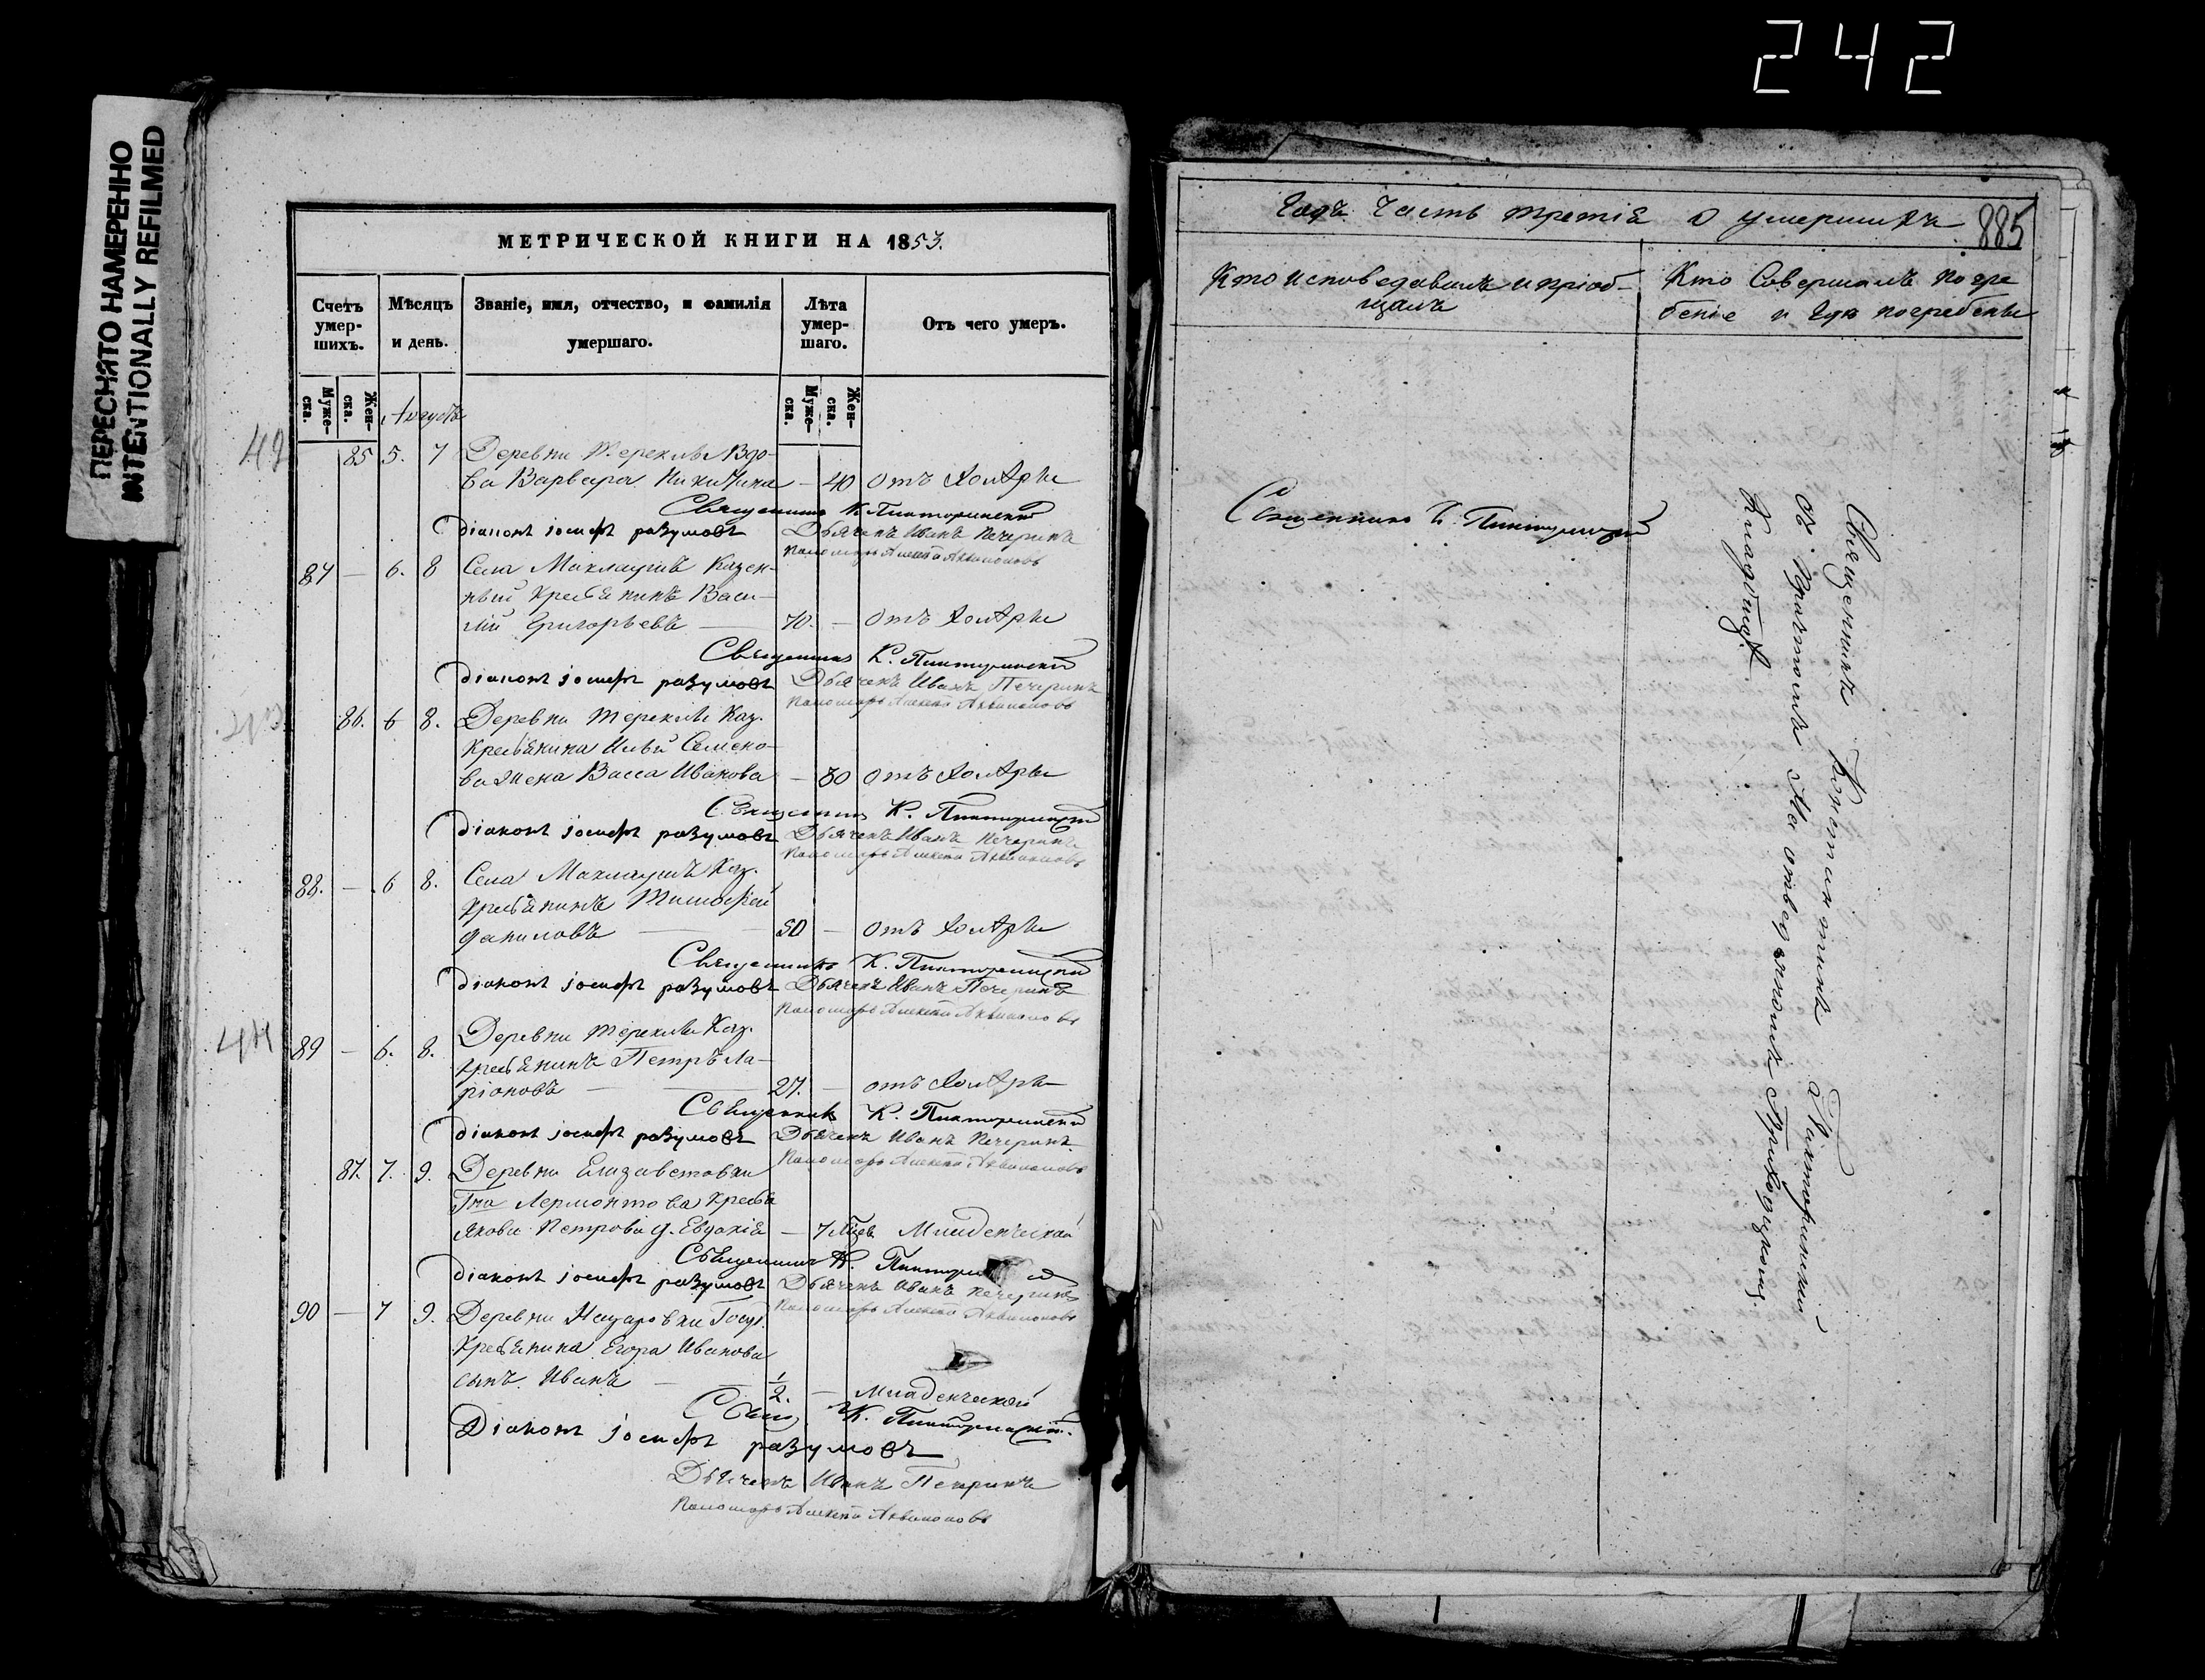 242
ПЕРЕСНЯТО НАМЕРЕННО
INTENTIONALLY REFILMED
МЕТРИЧЕСКОЙ КНИГИ НА 1853.
Счетъ умер-шихъ.
Мѣсяцъ и день.
Званіе, имя, отчество, и фамилія умершаго.
Лѣта умер-шаго.
Отъ чего умеръ.
Муже-ска.
Жен-ска.
Августъ
Муже-ска.
Жен-ска.
85 5. 7 Деревни Вдо-
ва Варвара Никитина — 40 отъ Холеры
Священникъ К. Пикторинский
діаконъ іосифъ разумовъ Дьячекъ Иванъ Печеринъ
Пономарь Алексѣй Аквилоновъ
87 — 6. 8 Села Казен-
ный Крестьянинъ Васи-
лій Григорьевъ — 70. — отъ Холеры
Священникъ К. Пикторинский
діаконъ іосифъ разумовъ Дьячекъ Иванъ Печеринъ
Пономарь Алексѣй Аквилоновъ
86. 6 8. Деревни Каз.
Крестьянина Семено-
ва жена Васса Иванова — 30 отъ Холеры
Священникъ К. Пикторинский
діаконъ іосифъ разумовъ Дьячекъ Иванъ Печеринъ
Пономарь Алексѣй Аквилоновъ
88. — 6 8. Села Каз.
Крестьянинъ Тимофей
Даниловъ — 50 — отъ Холеры
Священникъ К. Пикторинский
діаконъ іосифъ разумовъ Дьячекъ Иванъ Печеринъ
Пономарь Алексѣй Аквилоновъ
44
89 — 6. 8. Деревни Каз.
Крестьянинъ Петръ Ла-
ріоновъ — 27. — отъ Холеры
Священникъ К. Пикторинский
діаконъ іосифъ разумовъ Дьячекъ Иванъ Печеринъ
Пономарь Алексѣй Аквилоновъ
87. 7. 9. Деревни Елизаветовки
Гна Лермонтова Крестья
Якова Петрова д. Евдокія — 7 мѣсяц Младенческой
Священникъ К.
діаконъ іосифъ разумовъ Дьячекъ Иванъ Печеринъ
Пономарь Алексѣй Аквилоновъ
90 — 7 9. Деревни Госуд.
Крестьянина Егора Иванова
сынъ Иванъ — 1/2. — Младенческой
Свящ. К. Пикторинский.
Діаконъ іосифъ разумовъ
Дьячекъ Иванъ Печеринъ
Пономарь Алексѣй Аквилоновъ
Годъ Часть третія о умершихъ 885
Кто исповедавалъ и пріоб-
щалъ
Кто Совершалъ погре
беніе и Гдѣ погребены
Священникъ К. Пикторинский
Священникъ Константинъ Пикторинский
На отведенномъ Приходскомъ
Кладбищѣ.